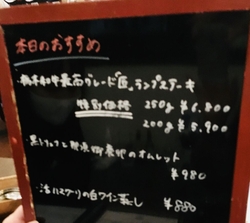 本日のおすすめ
・栃木和牛最高グレード"匠"ランプステーキ
特別価格 150g ¥4,800
200g ¥5,900
・黒トリュフと那須御養卵のオムレット
¥980
・活ハマグリの白ワイン蒸し ¥880